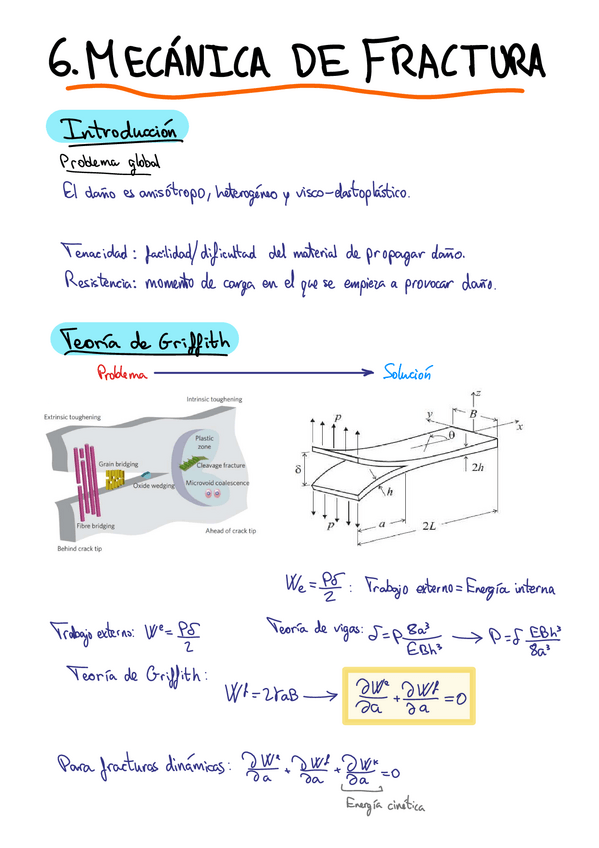 6. MECÁNICA DE FRACTURA
Introducción
Problema global
El daño es anisótropo, heterogéneo y visco-elastoplástico.
Tenacidad: facilidad/dificultad del material de propagar daño.
Resistencia: momento de carga en el que se empieza a provocar daño.
Teoría de Griffith
Problema → Solución
Intrinsic toughening
Extrinsic toughening
Plastic zone
Grain bridging
Cleavage fracture
Oxide wedging
Microvoid coalescence
Fibre bridging
Ahead of crack tip
Behind crack tip
z
P
y
B
x
θ
δ
2h
h
P
a
2L
We = Pδ/2 : Trabajo externo = Energía interna
Trabajo externo: Wᵉ = Pδ/2
Teoría de vigas: δ = P 8a³/EBh³ → P = δ EBh³/8a³
Teoría de Griffith:
Wᶠ = 2γaB → ∂Wᵉ/∂a + ∂Wᶠ/∂a = 0
Para fracturas dinámicas: ∂Wᵉ/∂a + ∂Wᶠ/∂a + ∂Wᵏ/∂a = 0
Energía cinética